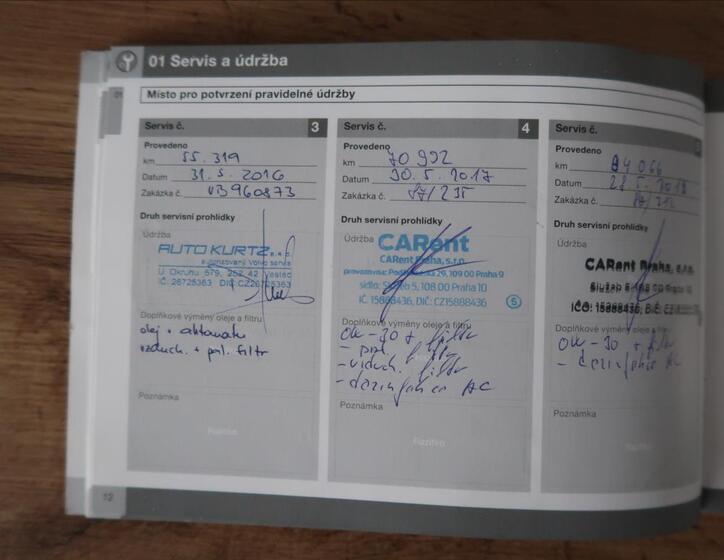 01 Servis a údržba
01
Místo pro potvrzení pravidelné údržby
Servis č. 3
Provedeno
km 55.319
Datum 31.5.2016
Zakázka č. VB960873
Druh servisní prohlídky
Údržba
AUTO KURTZ s.r.o.
autorizovaný Volvo servis
U Okruhu 579, 252 42 Vestec
IČ: 26725363 DIČ: CZ26725363
Doplňkové výměny oleje a filtru
olej +
vzduch. + pyl. filtr
Poznámka
Razítko
12
Servis č. 4
Provedeno
km 70 992
Datum 30.5.2017
Zakázka č.
Druh servisní prohlídky
Údržba
CARent
CARent Praha, s.r.o.
provozovna: 29, 109 00 Praha 9
sídlo: 5, 108 00 Praha 10
IČ: 15888436, DIČ: CZ15888436
5
Doplňkové výměny oleje a filtru
+ filtr
- pyl. filtr
- vzduch. filtr
- dezinfekce AC
Poznámka
Razítko
Servis č. 5
Provedeno
km 94 066
Datum
Zakázka č.
Druh servisní prohlídky
Údržba
CARent Praha, s.r.o.
108 00 Praha 10
IČO: 15888436, DIČ:
Doplňkové výměny oleje a filtru
+ filtr
- dezinfekce AC
Poznámka
Razítko